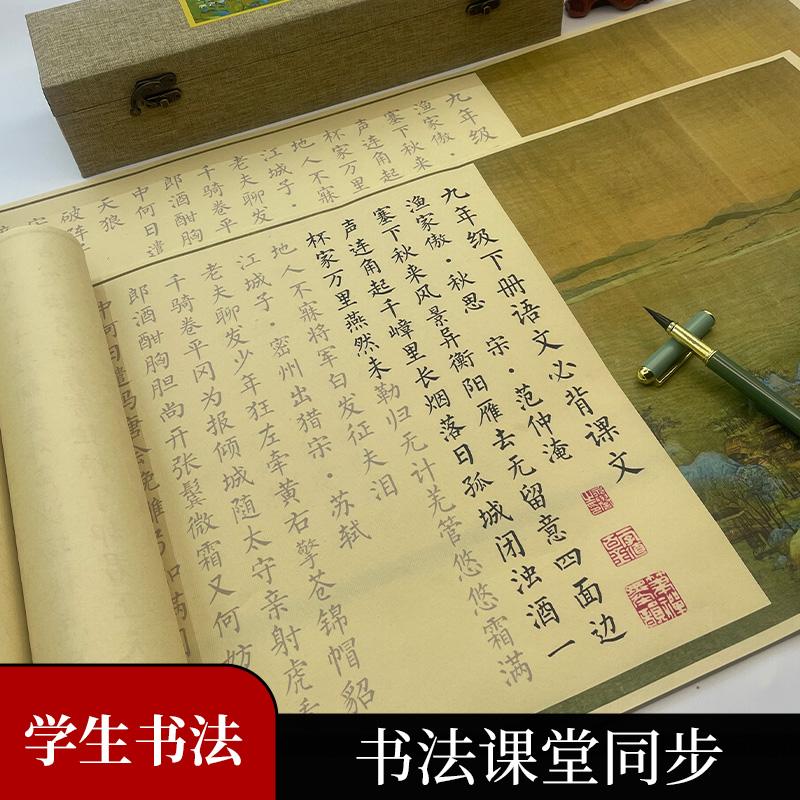 九年级
渔家傲·
塞下秋来
声连角起
杯家万里
地人不寐
江城子·
老夫聊发
千骑卷平
郎酒酣胸
中何日遣
天狼
破阵
九年级下册语文必背课文
渔家傲·秋思 宋·范仲淹
塞下秋来风景异衡阳雁去无留意四面边
声连角起千嶂里长烟落日孤城闭浊酒一
杯家万里燕然未勒归无计羌管悠悠霜满
地人不寐将军白发征夫泪
江城子·密州出猎宋·苏轼
老夫聊发少年狂左牵黄右擎苍锦帽貂
千骑卷平冈为报倾城随太守亲射虎
郎酒酣胸胆尚开张鬓微霜又何妨
中何日遣冯唐会挽雕弓如满月
学生书法
书法课堂同步